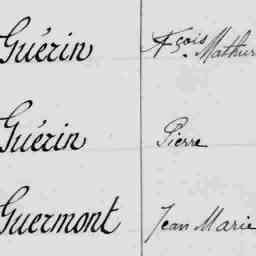 Guérin Fçois Mathur
Guérin Pierre
Guermont Jean Marie